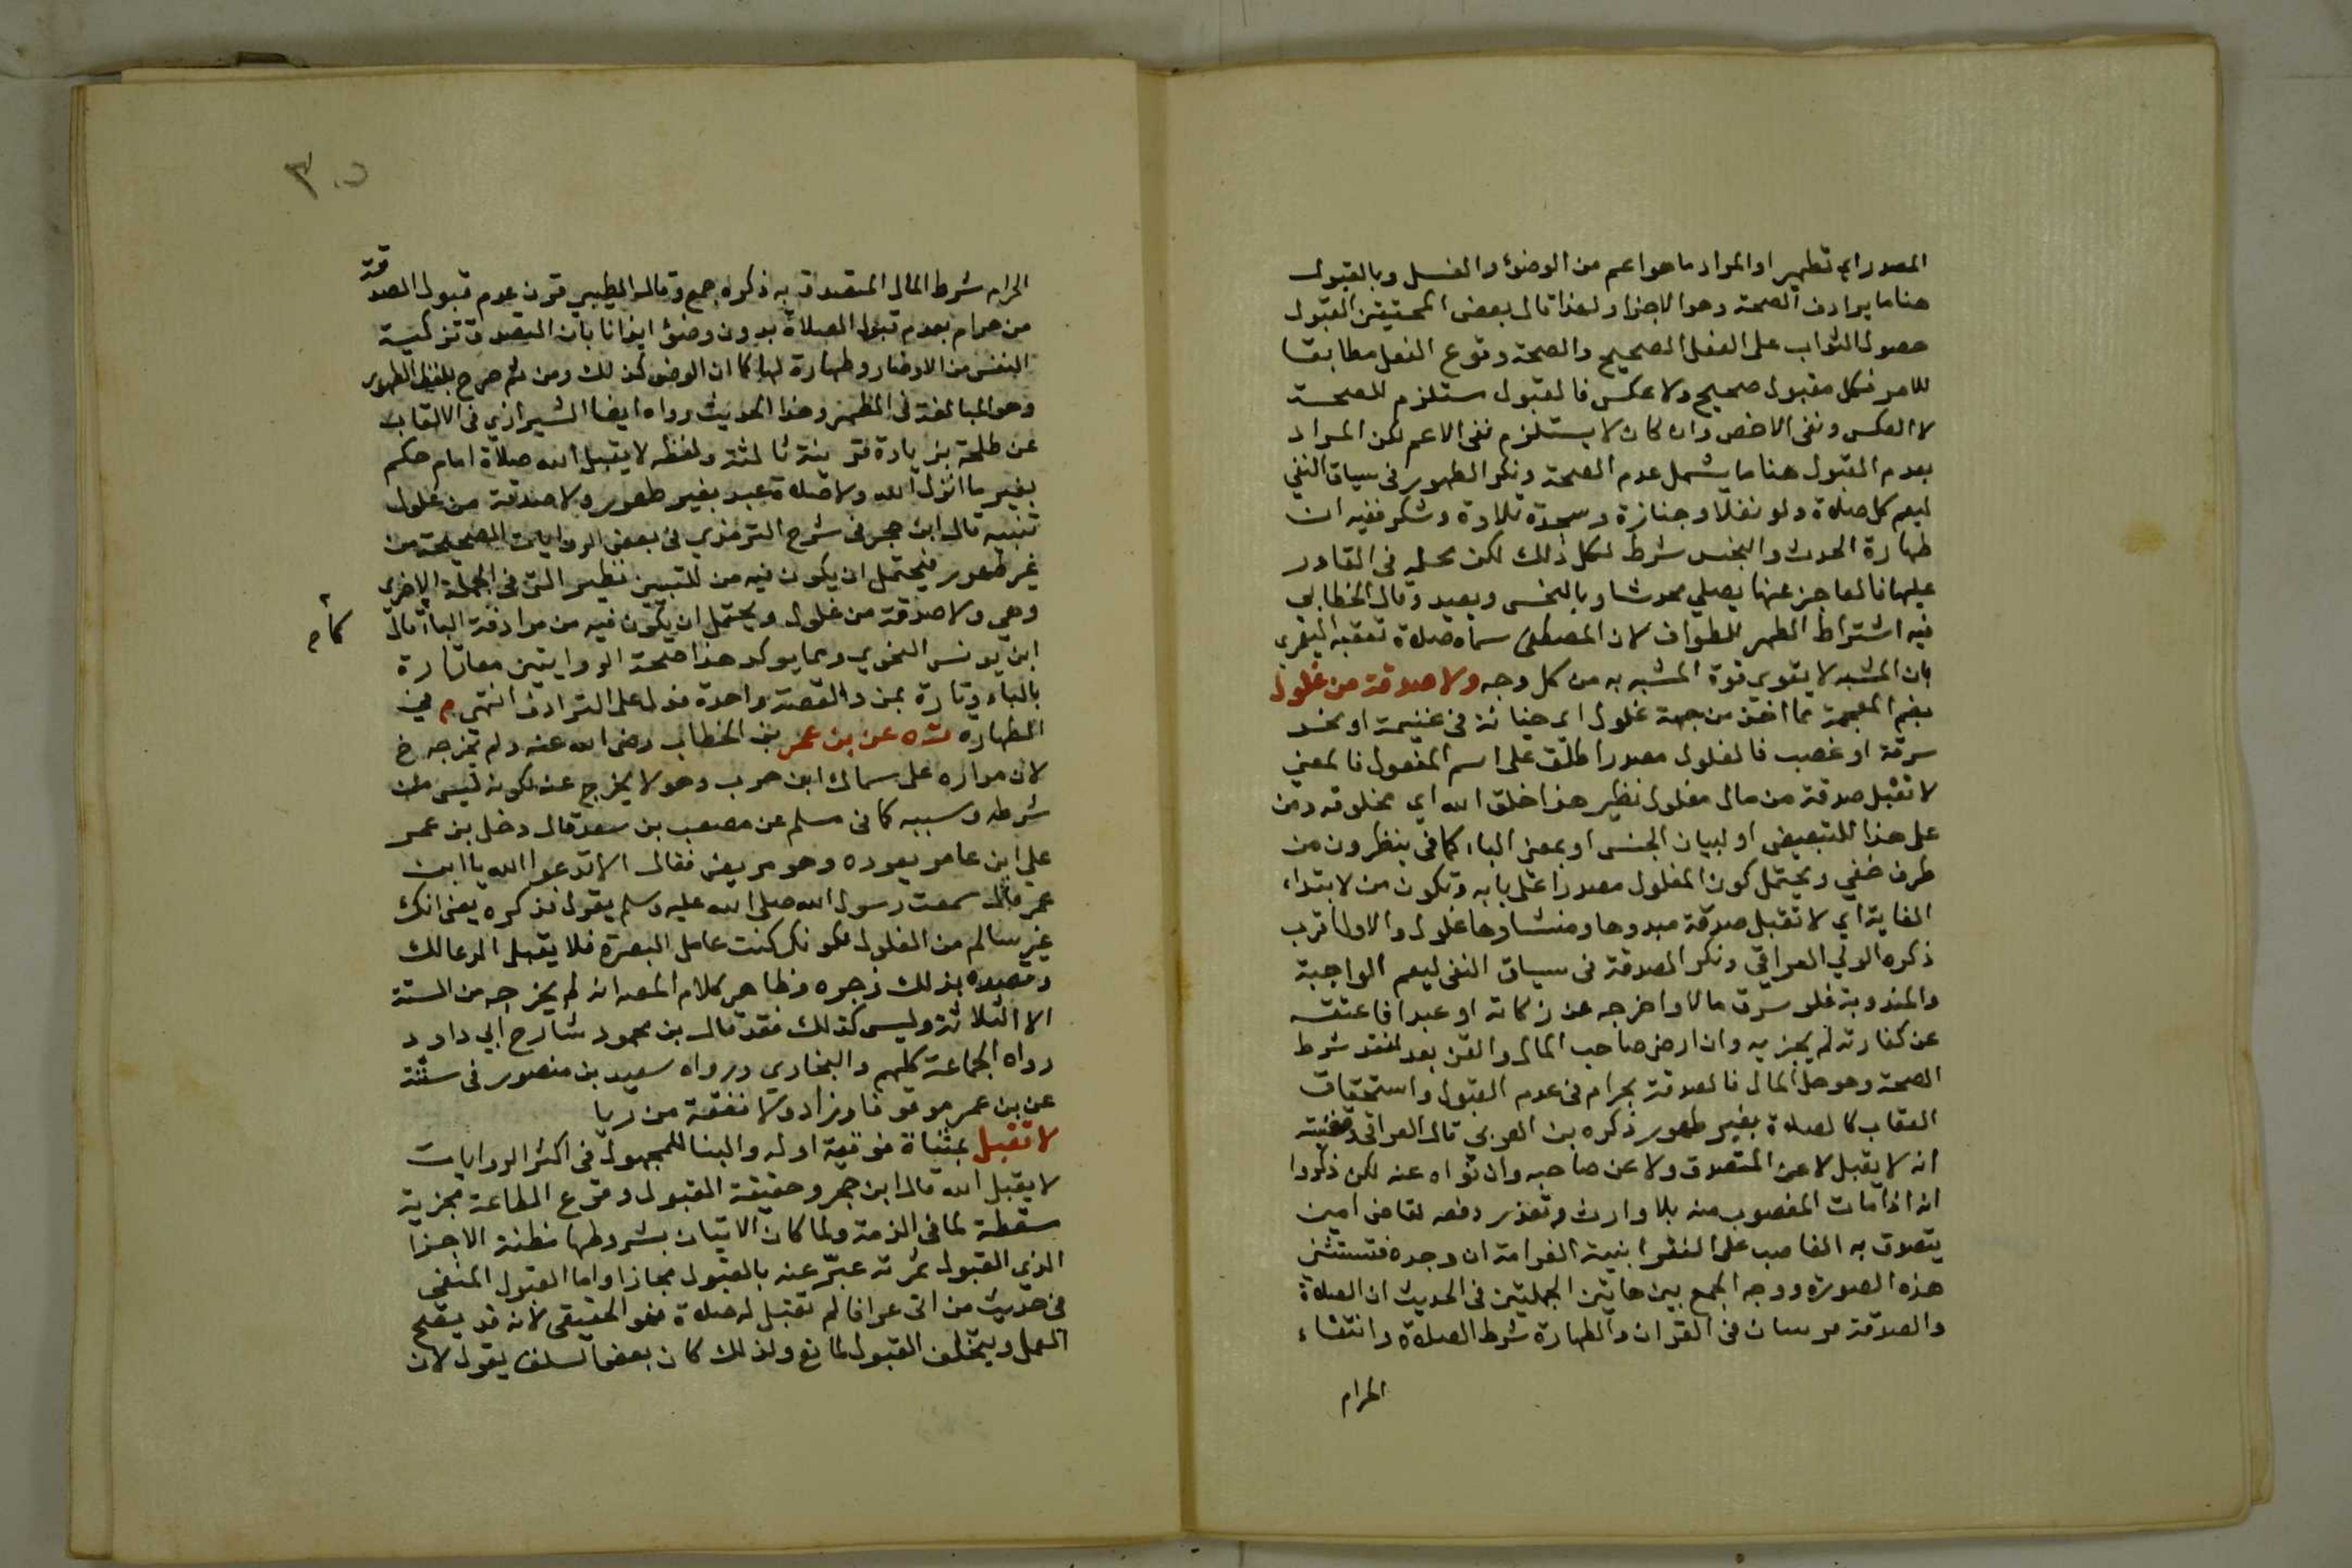 المصدر اي تطهير او المراد ما هو اعم من الوضؤ والغسل وبالقبول
هنا ما يرادف الصحة وهو الاجزا ولهذا قال بعض المحققين القبول
حصول الثواب على الفعل الصحيح والصحة وقوع الفعل مطابقا
للامر فكل مقبول صحيح ولا عكس فالقبول مستلزم للصحة
لا العكس ونفى الاخص وان كان لا يستلزم نفى الاعم لكن المراد
بعدم القبول هنا ما يشمل عدم الصحة ونكر الطهور فى سياق النفي
ليعم كل صلاة ولو نفلا وجنازة وسجدة تلاوة وشكر ففيه ان
طهارة الحدث والنجس شرط لكل ذلك لكن محله فى القادر
عليها فالعاجز عنها يصلي محدثا وبالنجس ويعيد وقال الخطابي
فيه اشتراط الطهر للطواف لان المصطفى سماه صلاة تعقبه اليعمري
بان المشبه لا يقوى قوة المشبه به من كل وجه ولا صدقة من غلول
بضم المعجمة مما اخذ من جهة غلول اى خيانة فى غنيمة او نحو
سرقة او غصب فالغلول مصدر اطلق على اسم المفعول فالمعني
لا تقبل صدقة من مال مغلول نظير هذا خلق الله اي مخلوقه ومن
على هذا للتبعيض او لبيان الجنس او بمعنى الباء كما فى ينظرون من
طرف خفي ويحتمل كون الغلول مصدرا على بابه وتكون من لابتداء
الغاية اي لا تقبل صدقة مبدوها ومنشاوها غلول والاول اقرب
ذكره الولي العراقي ونكر الصدقة فى سياق النفى ليعم الواجبة
والمندوبة فلو سرق مالا واخرجه عن زكاته او عبدا فاعتقه
عن كفارته لم يجزيه وان ارضى صاحب المال والقن بعد لفقد شرط
الصحة وهو حل المال فالصدقة بحرام فى عدم القبول واستحقاق
العقاب كالصلاة بغير طهور ذكره بن العربي قال العراقى وقضيته
انه لا يقبل لا عن المتصدق ولا عن صاحبه وان نواه عنه لكن ذكروا
انه اذا مات المغصوب منه بلا وارث وتعذر دفعه لقاض امين
يتصدق به الغاصب على الفقرا بنية الغرامة ان وجده فتستثنى
هذه الصورة ووجه الجمع بين هاتين الجملتين فى الحديث ان الصلاة
والصدقة مرسان فى القران والطهارة شرط الصلاة وانتفاء
الحرام
الحرام شرط المال المتصدق به ذكره جمع وقال الطيبي قرن عدم قبول الصدقة
من حرام بعدم قبول الصلاة بدون وضؤ ايذانا بان التصدق تزكية
النفس من الاوضار وطهارة لها كما ان الوضؤ كذلك ومن ثم صرح بلفظ الطهور
وهو المبالغة فى المطهر وهذا الحديث رواه ايضا الشيرازي فى الالقاب
عن طلحة بزيادة قرينة ثالثة ولفظه لا يقبل الله صلاة امام حكم
بغير ما انزل الله ولا صلاة عبد بغير طهور ولا صدقة من غلول
تنبيه قال ابن حجر فى شرح الترمذي فى بعض الروايات الصحيحة من
غير طهور فيحتمل ان يكون فيه من للتبيين نظير التى فى الجملة الاخرى
وهي ولا صدقة من غلول ويحتمل ان يكون فيه من مرادفة الباء قال
ابن يونس النحوي ومما يوكد هذا صحة الروايتين معا تارة
بالباء وتارة بمن والقصة واحدة فدل على الترادف انتهى م في
الطهارة ت ه عن بن عمر بن الخطاب رضى الله عنه ولم يخرجه خ
لان مداره على سماك ابن حرب وهو لا يخرج عنه لكونه ليس من
شرطه وسببه كما فى مسلم عن مصعب بن سعد قال دخل بن عمر
على ابن عامر يعوده وهو مريض فقال الا تدعوا الله يا ابن
عمر قال سمعت رسول الله صلى الله عليه وسلم يقول فذكره يعنى انك
غير سالم من الغلول لكونك كنت عامل البصرة فلا يقبل الدعا لك
وقصده بذلك زجره وظاهر كلام المص انه لم يخرجه من الستة
الا الثلاثة وليس كذلك فقد قال بن محمود شارح ابي داود
رواه الجماعة كلهم والبخاري ورواه سعيد بن منصور فى سننه
عن بن عمر موقوفا وزاد ولا نفقة من ربا
لا تقبل بمثناة فوقية اوله والبنا للمجهول فى اكثر الروايات
لا يقبل الله قال ابن حجر وحقيقة القبول وقوع الطاعة مجزية
مسقطة لما فى الذمة ولما كان الاتيان بشروطها مظنة الاجزا
الذى القبول ثمرته عبر عنه بالقبول مجازا واما القبول المنفى
فى حديث من اتى عرافا لم تقبل له صلاة فهو الحقيقى لانه قد يصح
العمل ويتخلف القبول لمانع ولذلك كان بعض السلف يقول لان